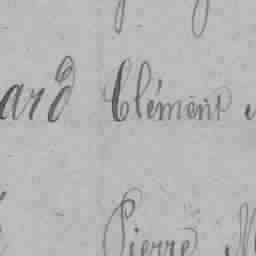 ard Clément
Pierre